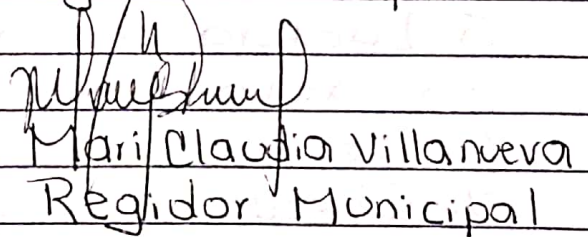 Mari Claudia Villanueva
Regidor Municipal